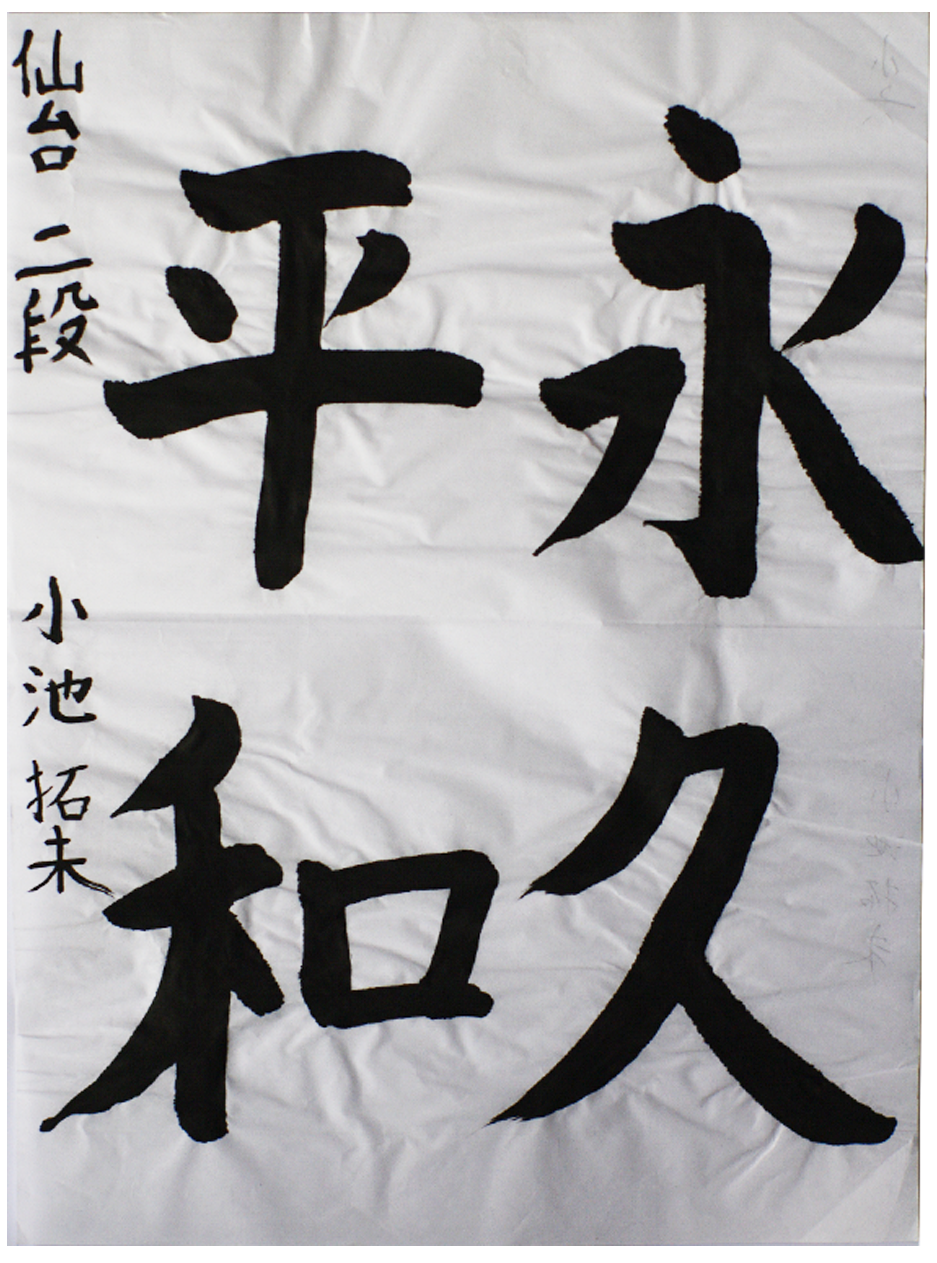 永久
平和
仙台 二段 小池 拓未